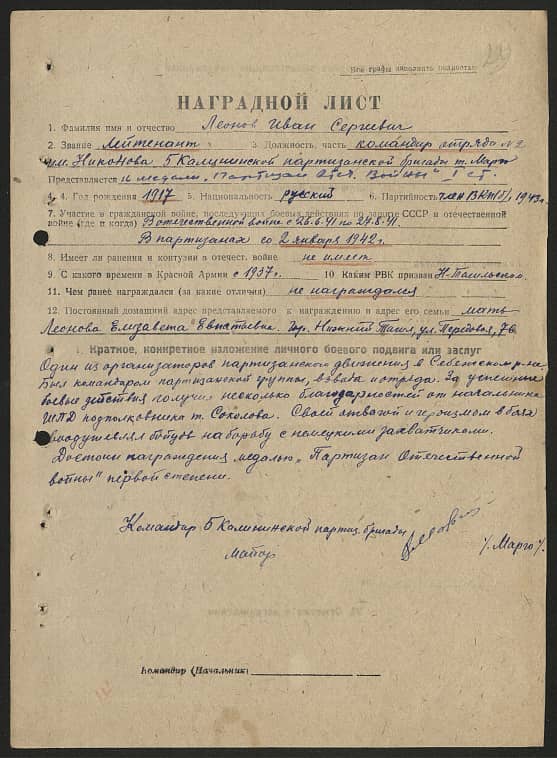 Все графы заполнять полностью
НАГРАДНОЙ ЛИСТ
1. Фамилия имя и отчество Леонов Иван Сергиевич
2. Звание Лейтенант 3. Должность, часть командир отряда №2
им. Никонова 5 Калининской партизанской бригады т. Марго
Представляется к медали „Партизан Отеч. Войны" I ст.
4. Год рождения 1917 5. Национальность русский 6. Партийность член ВКП/б/ 1943г.
7. Участие в гражданской войне, последующих боевых действиях по защите СССР и отечественной
войне (где и когда) В отечественной войне с 26.6.41 по 27.8.41.
В партизанах со 2 января 1942г.
8. Имеет ли ранения и контузии в отечест. войне не имеет
9. С какого времени в Красной Армии с 1937г. 10 Каким РВК призван Н-Тагильском
11. Чем ранее награждался (за какие отличия) не награждался
12. Постоянный домашний адрес представляемого к награждению и адрес его семьи мать
Леонова Елизавета гор. Нижний Тагил, ул.
1. Краткое, конкретное изложение личного боевого подвига или заслуг
Один из организаторов партизанского движения в Себежском р-не.
Был командиром партизанской группы, взвода и отряда. За успешные
боевые действия получил несколько благодарностей от начальника
ШПД подполковника т. Соколова. Своей отвагой и героизмом в боях
воодушевлял бойцов на борьбу с немецкими захватчиками.
Достоин награждения медалью „Партизан Отечественной
войны" первой степени.
Командир 5 Калининской партиз. бригады
майор /Марго/.
Командир (Начальник)